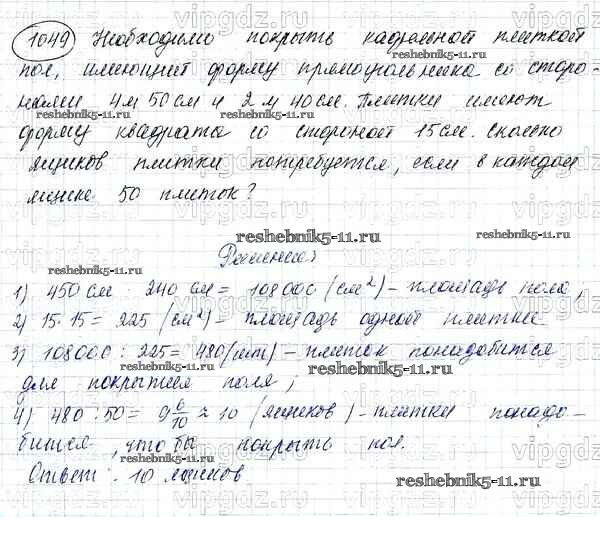 1049 Необходимо покрыть кафельной плиткой
пол, имеющий форму прямоугольника со сторо-
нами 4 м 50 см и 2 м 40 см. Плитки имеют
форму квадрата со стороной 15 см. Сколько
ящиков плитки потребуется, если в каждом
ящике 50 плиток?
reshebnik5-11.ru
Решение
1) 450 см · 240 см = 108000 (см²) – площадь пола,
2) 15·15 = 225 (см²) – площадь одной плитки
3) 108000 : 225 = 480 (шт) – плиток понадобится
для покрытия поля;
4) 480 : 50 = 9 6/10 ≈ 10 (ящиков) – плитки понадо-
бится, чтобы покрыть пол.
Ответ: 10 ящиков
reshebnik5-11.ru
vipgdz.ru